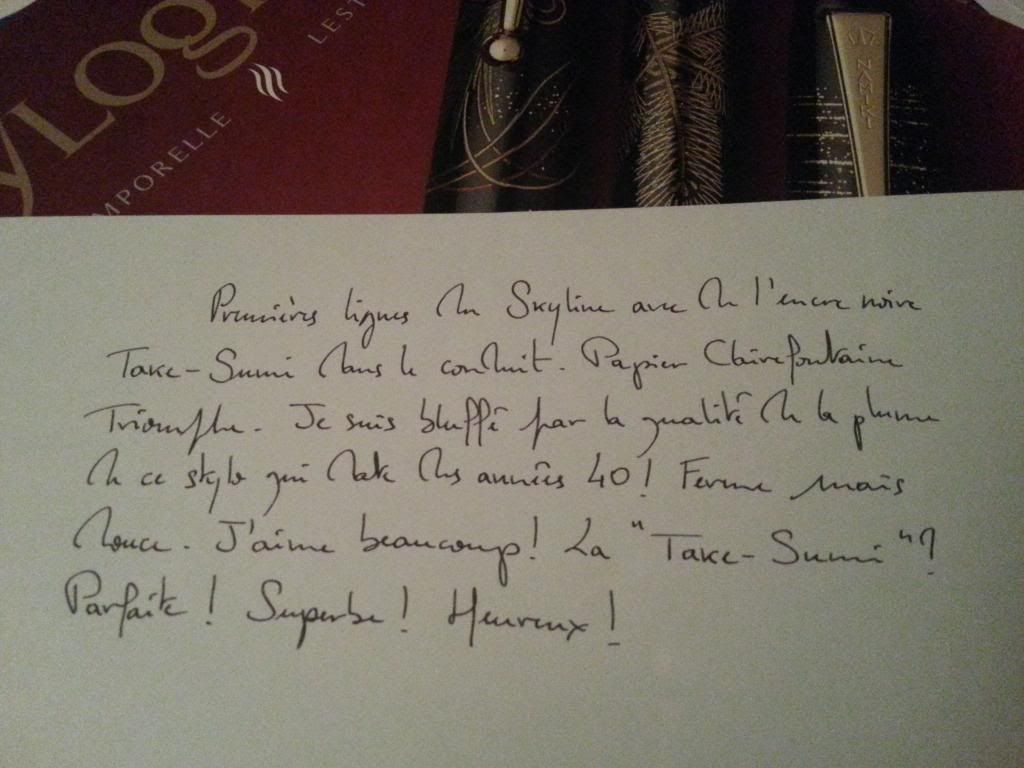 yLOG
LEST
MPORELLE
NAMIKI
Premières lignes du Skyline avec de l'encre noire
Take-Sumi dans le conduit. Papier Clairefontaine
Triomphe. Je suis bluffé par la qualité de la plume
de ce stylo qui date des années 40! Ferme mais
douce. J'aime beaucoup! La "Take-Sumi"?
Parfaite! Superbe! Heureux!